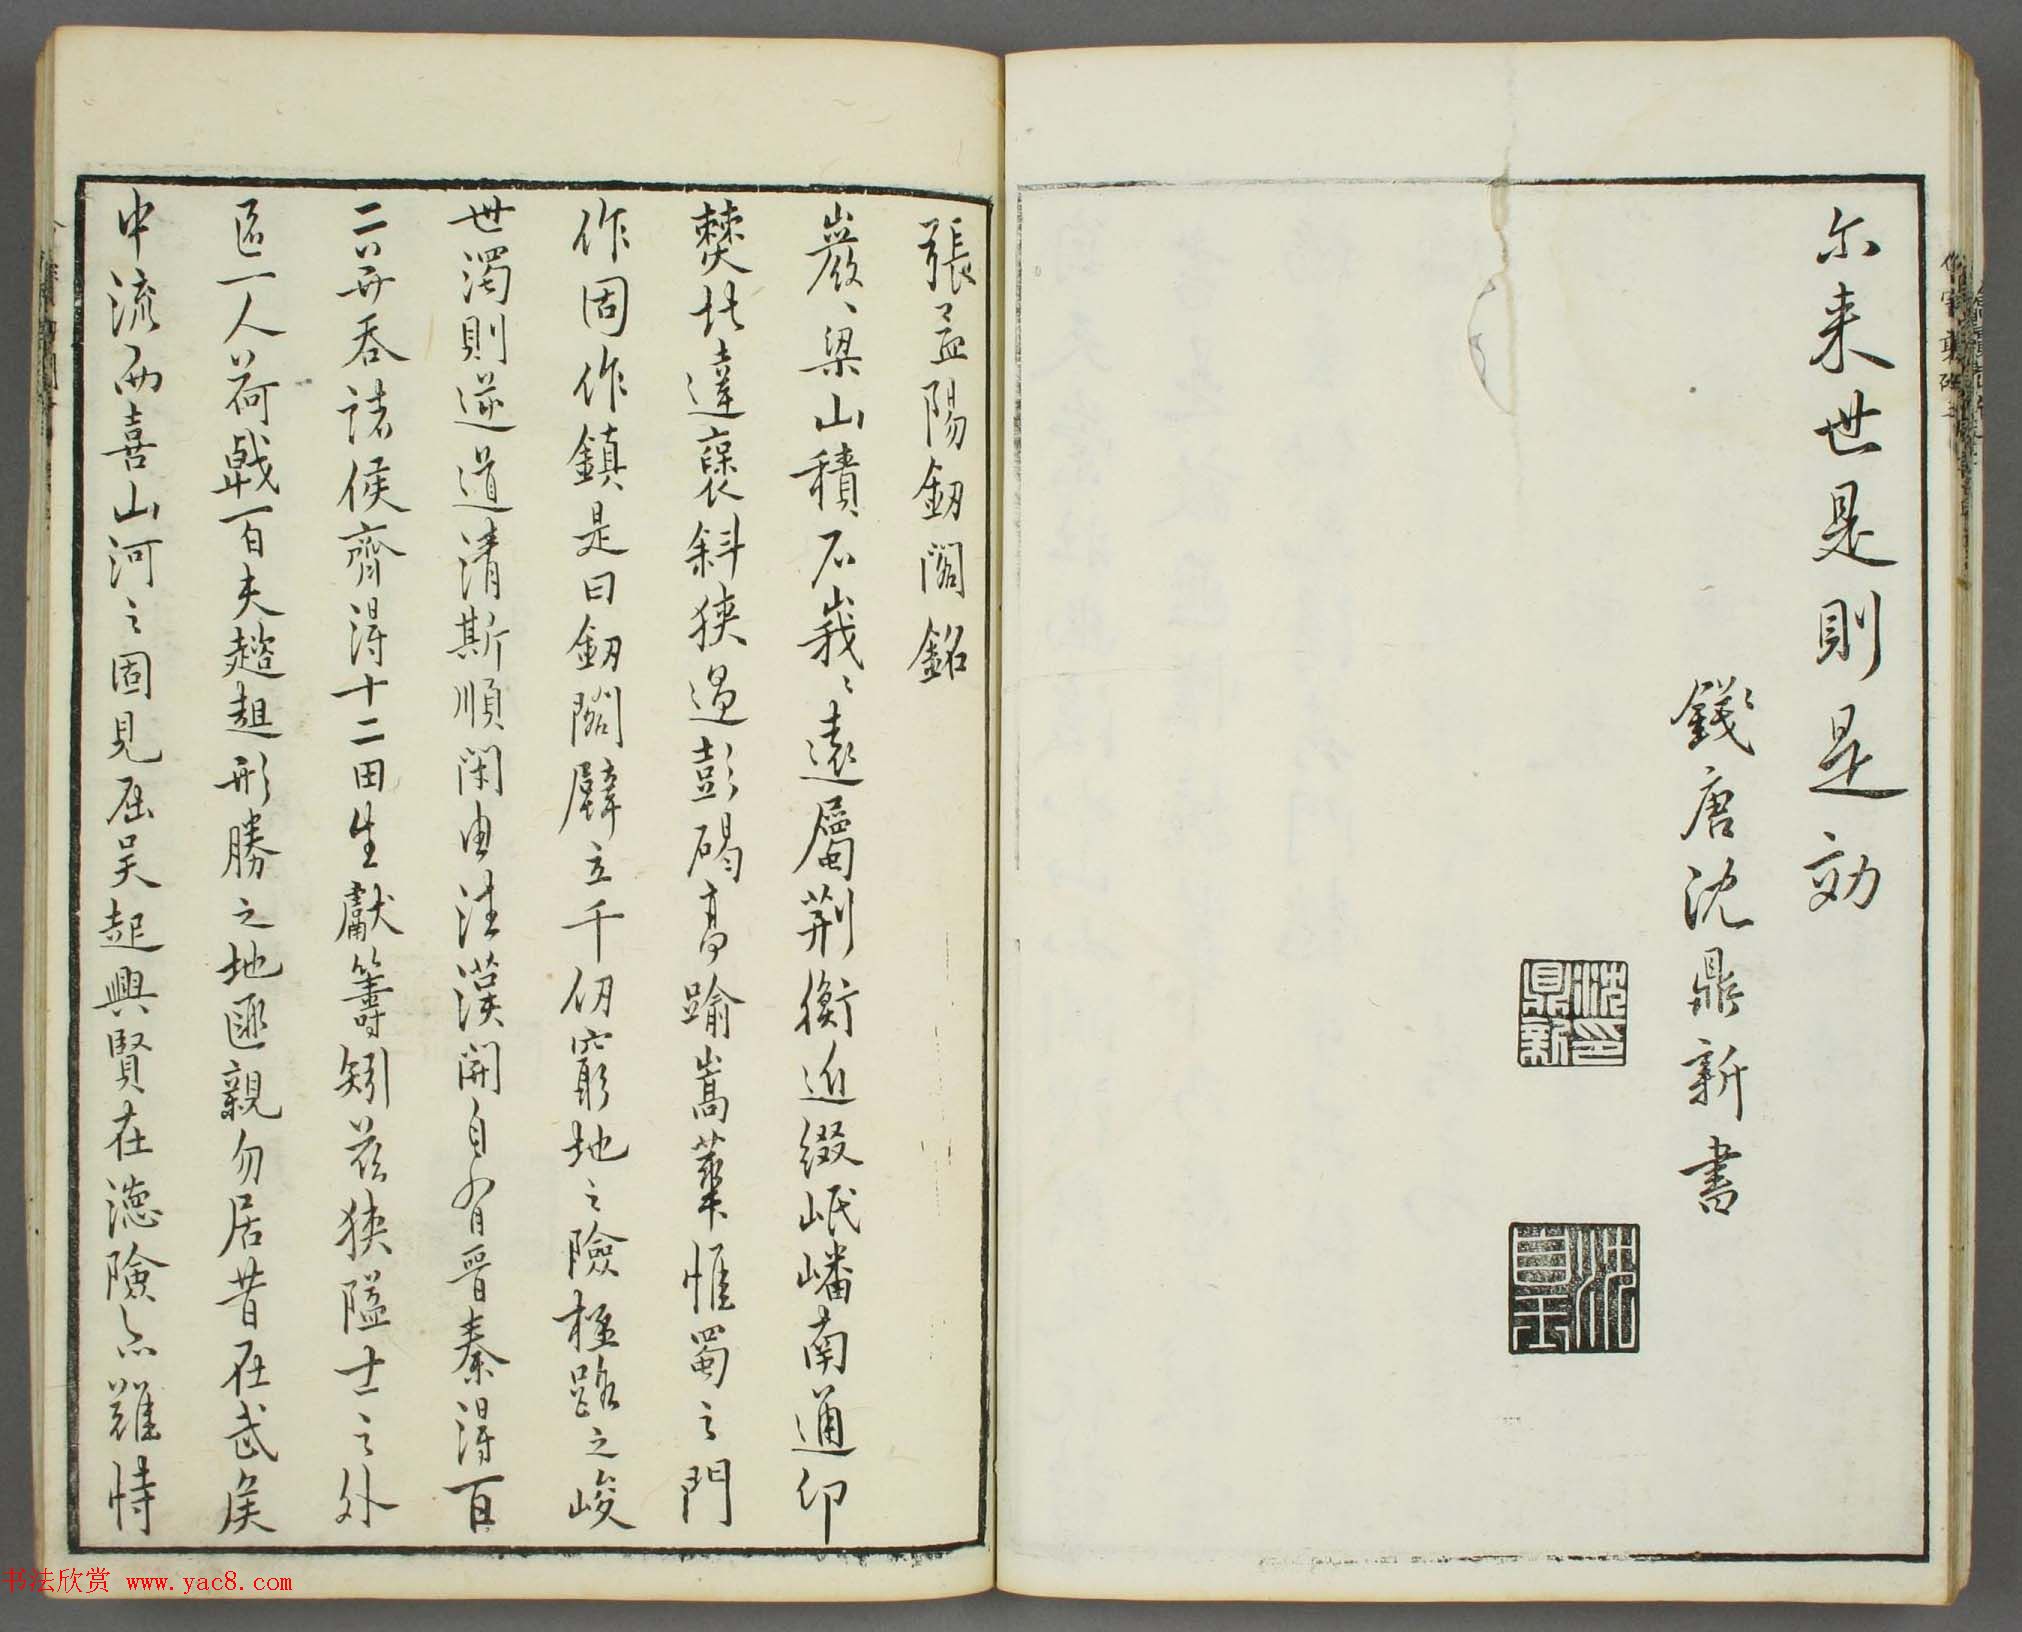 尔来世是則是効
錢唐沈鼎新書
沈印鼎新
張孟陽劒閣銘
巖〻梁山積石峩〻遠屬荆衡近綴岷嶓南通卭
僰北達褒斜狹過彭碣高踰嵩華惟蜀之門
作固作鎮是曰劒閣壁立千仞窮地之險極路之峻
世濁則逆道清斯順閑由往漢開自有晉秦得百
二并吞諸侯齊得十二田生獻籌矧兹狹隘土之外
區一人荷戟百夫趑趄形勝之地匪親勿居昔在武侯
中流而喜山河之固見屈吳起興賢在德險亦難恃
书法欣赏 www.yac8.com